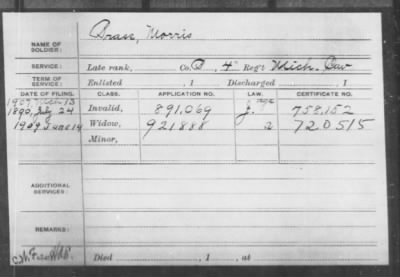 NAME OF SOLDIER: Morris
SERVICE: Late rank, Co. 4" Reg't Mich. Cav
TERM OF SERVICE: Enlisted , 1 Discharged , 1
DATE OF FILING. CLASS. APPLICATION NO. LAW. CERTIFICATE NO.
1890, July 24 Invalid, 891,069 758,152
1909 June 14 Widow, 921888 2 720515
Minor,
ADDITIONAL SERVICES:
REMARKS:
Died , 1 , at